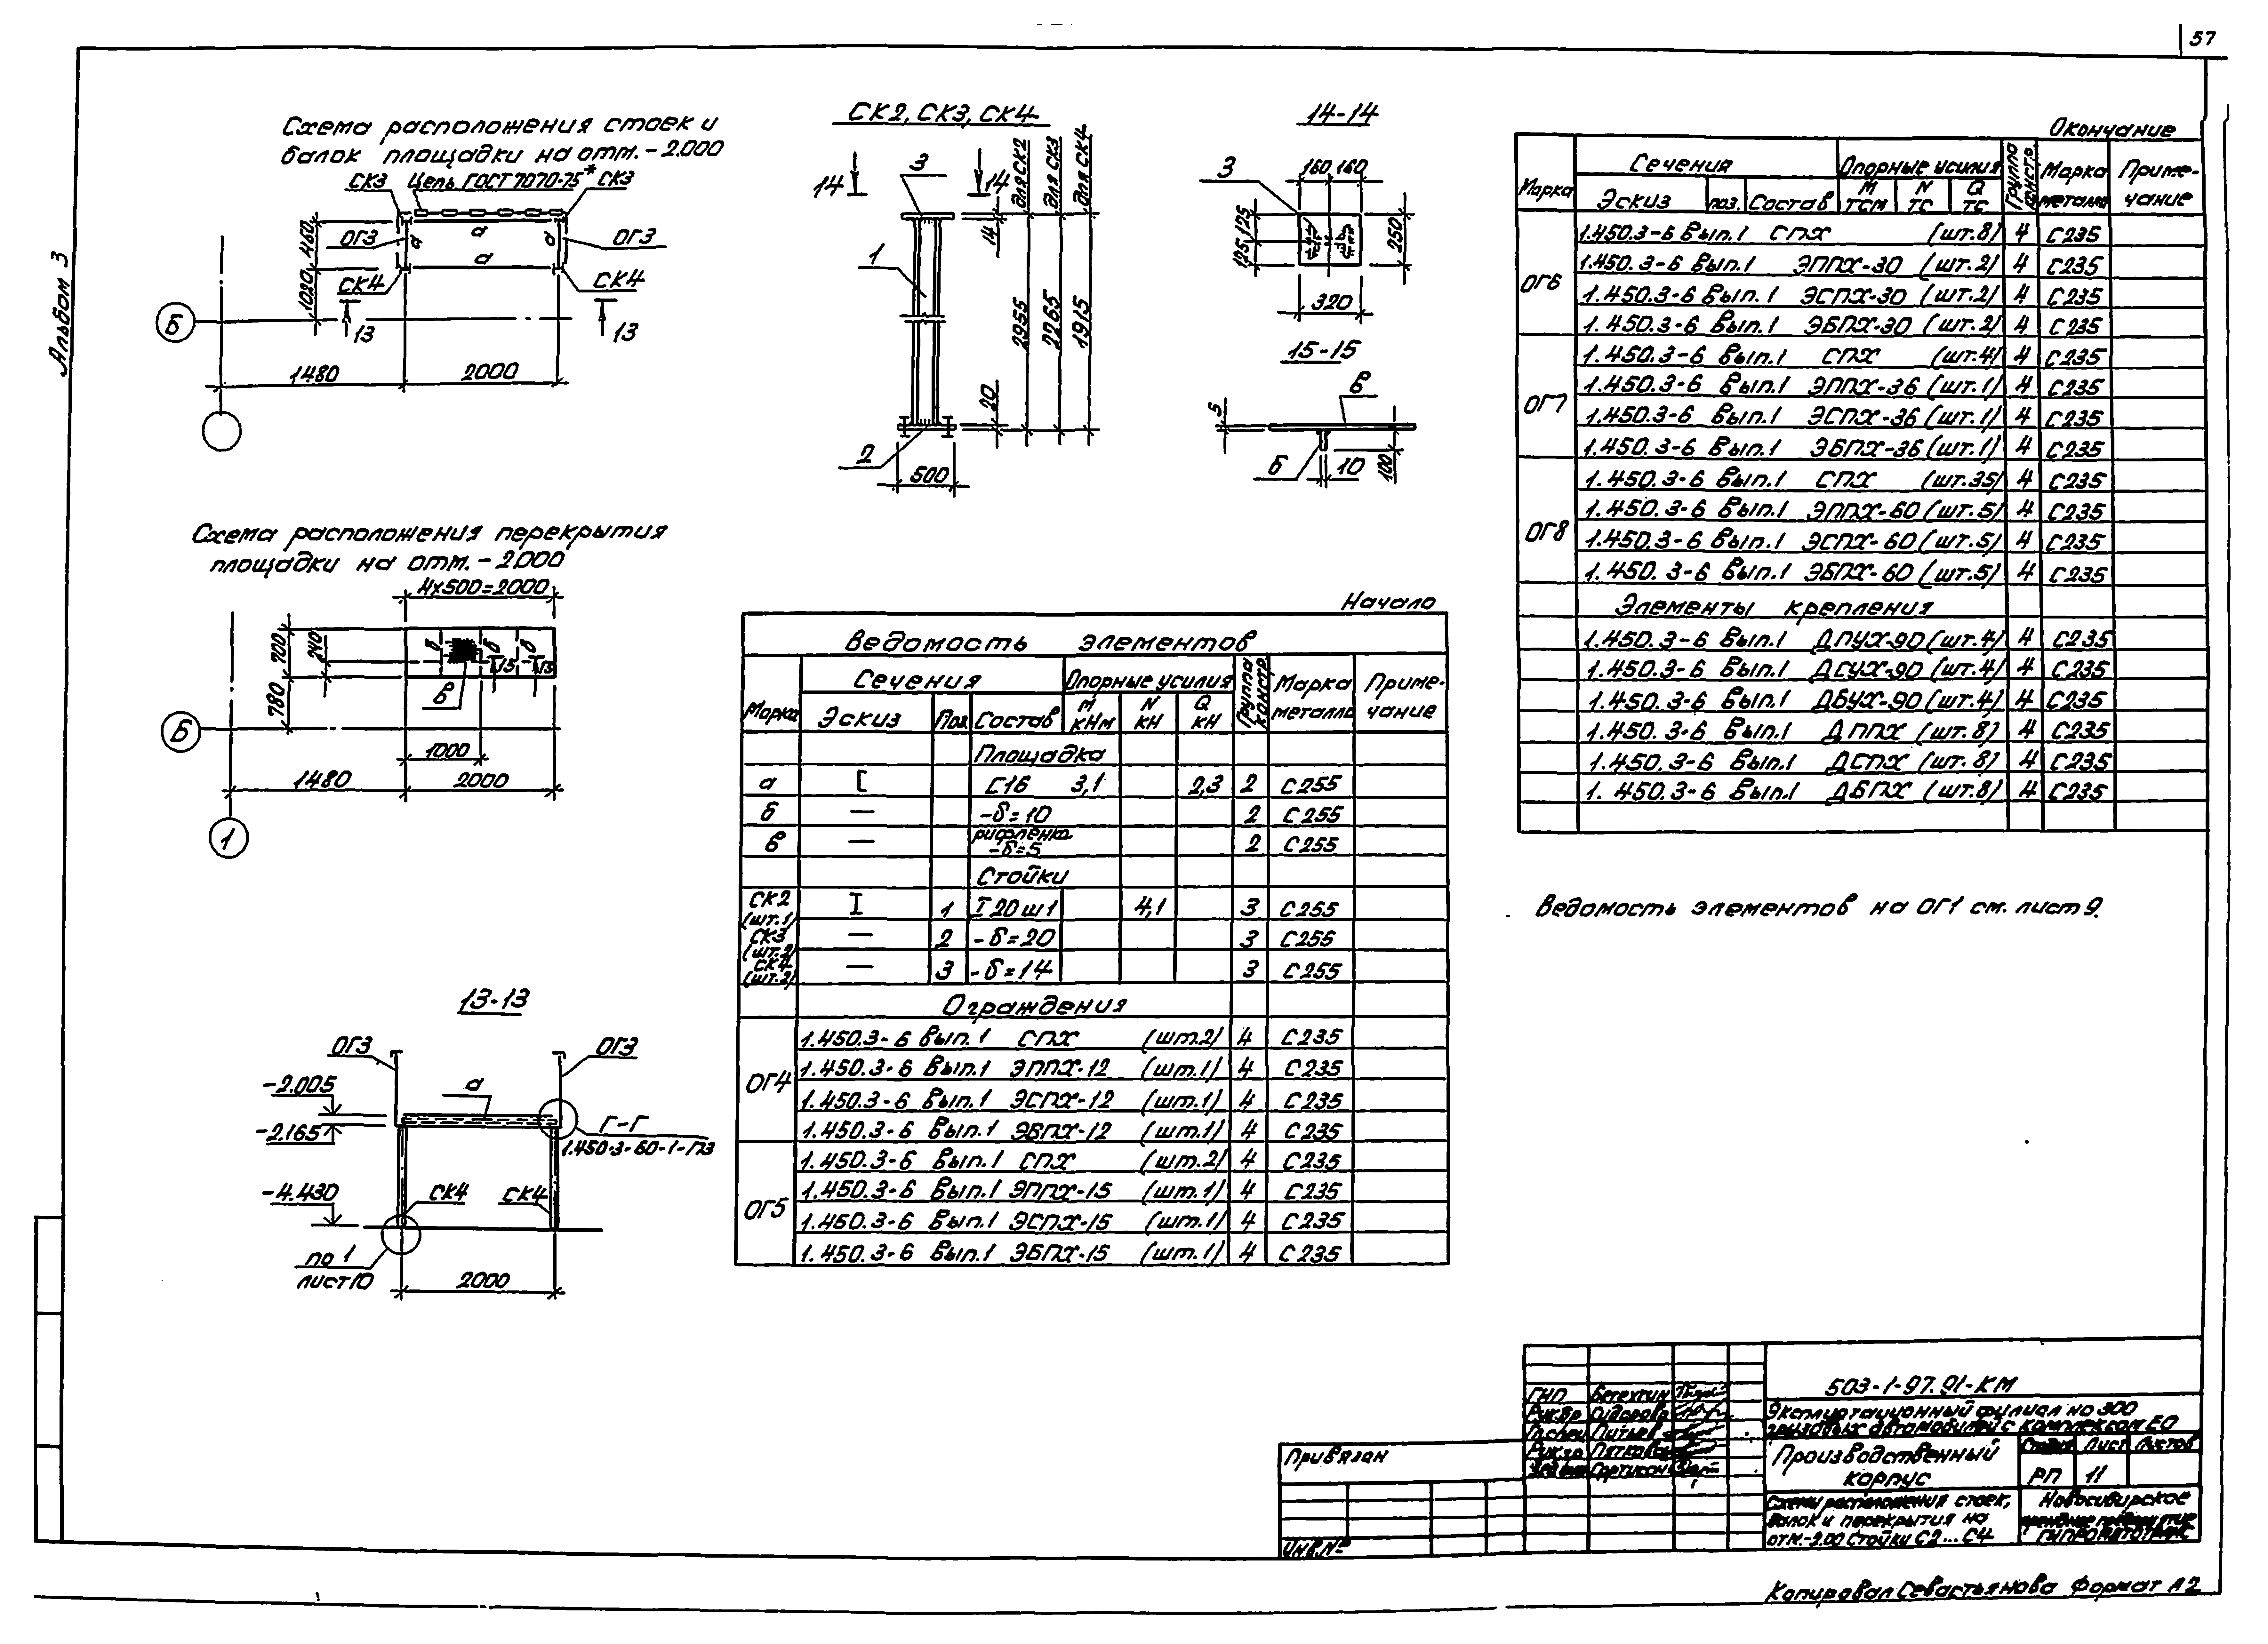 57
Альбом 3
Схема расположения стоек и
балок площадки на отм. -2.000
СК3 Цепь ГОСТ 7070-75* СК3
ОГ3 а а а ОГ3
460
1020
а
СК4 СК4
Б
13 13
1480 2000
Схема расположения перекрытия
площадки на отм. -2.000
4х500=2000
700
240
780
б б б
15 15
в
Б
1000
1480 2000
1
13-13
ОГ3 ОГ3
-2.005
а
-2.165
Г-Г
1.450.3-60-1-ПЗ
-4.430
СК4 СК4
по 1
лист 10
2000
СК2, СК3, СК4
14 3 14
для СК2
для СК3
для СК4
14
1
2955
2265
1915
20
2
500
14-14
3
160 160
125 125
250
320
15-15
в
5
б 10
100
Начало
Ведомость элементов
Марка Сечения Опорные усилия Группа констр. Марка металла Примечание
Эскиз Поз. Состав М кНм N кН Q кН
Площадка
а [ [16 3,1 2,3 2 С255
б — -δ=10 2 С255
в — рифленка -δ=5 2 С255
Стойки
СК2 (шт.1) I 1 I20ш1 4,1 3 С255
СК3 (шт.2) — 2 -δ=20 3 С255
СК4 (шт.2) — 3 -δ=14 3 С255
Ограждения
ОГ4
1.450.3-6 Вып.1 СПХ (шт.2) 4 С235
1.450.3-6 Вып.1 ЭППХ-12 (шт.1) 4 С235
1.450.3-6 Вып.1 ЭСПХ-12 (шт.1) 4 С235
1.450.3-6 Вып.1 ЭБПХ-12 (шт.1) 4 С235
ОГ5
1.450.3-6 Вып.1 СПХ (шт.2) 4 С235
1.450.3-6 Вып.1 ЭППХ-15 (шт.1) 4 С235
1.450.3-6 Вып.1 ЭСПХ-15 (шт.1) 4 С235
1.450.3-6 Вып.1 ЭБПХ-15 (шт.1) 4 С235
Окончание
Марка Сечения Опорные усилия Группа констр. Марка металла Примечание
Эскиз поз. Состав М ТСМ N ТС Q ТС
ОГ6
1.450.3-6 Вып.1 СПХ (шт.8) 4 С235
1.450.3-6 Вып.1 ЭППХ-30 (шт.2) 4 С235
1.450.3-6 Вып.1 ЭСПХ-30 (шт.2) 4 С235
1.450.3-6 Вып.1 ЭБПХ-30 (шт.2) 4 С235
ОГ7
1.450.3-6 Вып.1 СПХ (шт.4) 4 С235
1.450.3-6 Вып.1 ЭППХ-36 (шт.1) 4 С235
1.450.3-6 Вып.1 ЭСПХ-36 (шт.1) 4 С235
1.450.3-6 Вып.1 ЭБПХ-36 (шт.1) 4 С235
ОГ8
1.450.3-6 Вып.1 СПХ (шт.35) 4 С235
1.450.3-6 Вып.1 ЭППХ-60 (шт.5) 4 С235
1.450.3-6 Вып.1 ЭСПХ-60 (шт.5) 4 С235
1.450.3-6 Вып.1 ЭБПХ-60 (шт.5) 4 С235
Элементы крепления
1.450.3-6 Вып.1 ДПУХ-90 (шт.4) 4 С235
1.450.3-6 Вып.1 ДСУХ-90 (шт.4) 4 С235
1.450.3-6 Вып.1 ДБУХ-90 (шт.4) 4 С235
1.450.3-6 Вып.1 ДППХ (шт.8) 4 С235
1.450.3-6 Вып.1 ДСПХ (шт.8) 4 С235
1.450.3-6 Вып.1 ДБПХ (шт.8) 4 С235
Ведомость элементов на ОГ1 см. лист 9.
Привязан
Инв.№
ГИП Бегехтин
Рук.бр Сидорова
Гл.спец Питьев
Рук.гр Пяткова
503-1-97.91-КМ
Эксплуатационный филиал на 300
грузовых автомобилей с комплексом ЕО
Производственный
корпус
Стадия Лист Листов
РП 11
Схемы расположения стоек,
балок и перекрытия на
отм.-2.00 Стойки С2...С4
Новосибирское
ГИПРОАВТОТРАНС
Копировал Севастьянова Формат А2